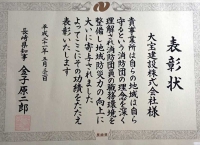 表彰状
大宝建設株式会社様
貴事業所は自らの地域は自ら
守るという消防団の理念を深く
理解され消防団員の職務環境を
整備し地域防災力の向上に
大いに寄与されました
よってここにその功績をたたえ
表彰いたします
平成二十一年
長崎県知事
金子原二郎